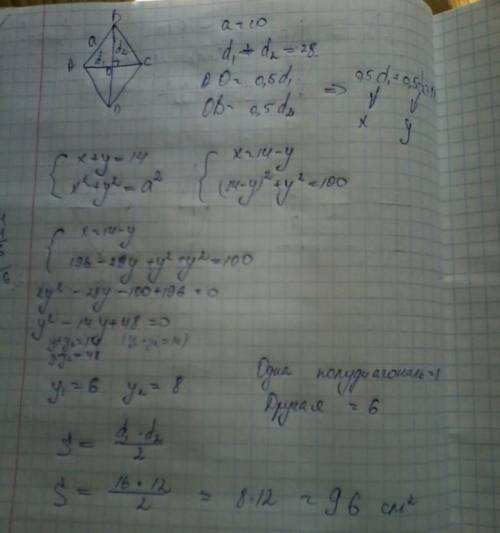 B
a
d₂
A d₁ O C
D
a = 10
d₁ + d₂ = 28
AO = 0,5d₁
OB = 0,5d₂
=> 0,5d₁ + 0,5d₂
x y
{ x+y=14
x²+y²=a²
{ x=14-y
(14-y)²+y²=100
{ x=14-y
196-28y+y²+y²=100
2y²-28y-100+196=0
y²-14y+48=0
y₁+y₂=14
y₁y₂=48
y₁=6 y₂=8
Одна полудиагональ
Другая = 6
S = d₁·d₂/2
S = 16·12/2 = 8·12 = 96 см²